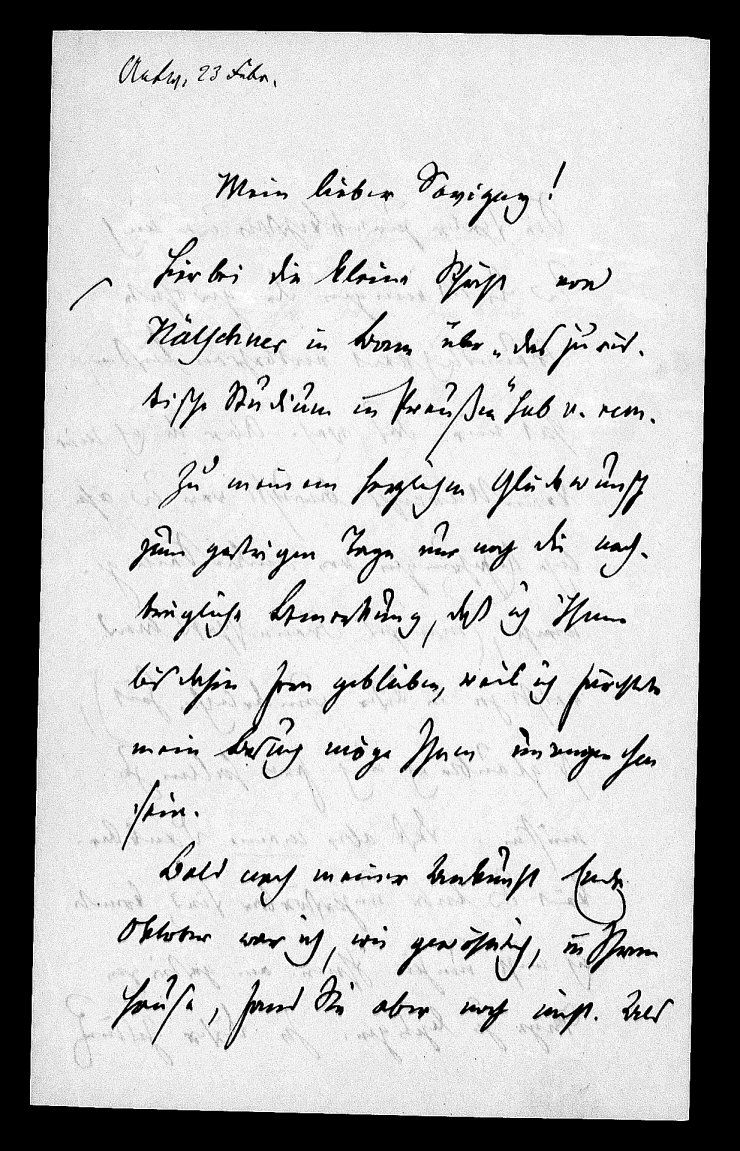 Antw. 23 Febr.
Mein lieber Savigny!
Hierbei die kleine Schrift von
Hälschner in Bonn über „das juris-
tische Studium in Preußen" sub v. rem.
Zu meinem herzlichen Glückwunsch
zum gestrigen Tage nur noch die nach-
trägliche Bemerkung, daß ich Ihnen
bis dahin fern geblieben, weil ich fürchtete
mein Besuch möge Ihnen unangenehm
sein.
Bald nach meiner Ankunft Ende
Oktober war ich, wie gewöhnlich, in Ihrem
Hause, fand Sie aber noch nicht. Als